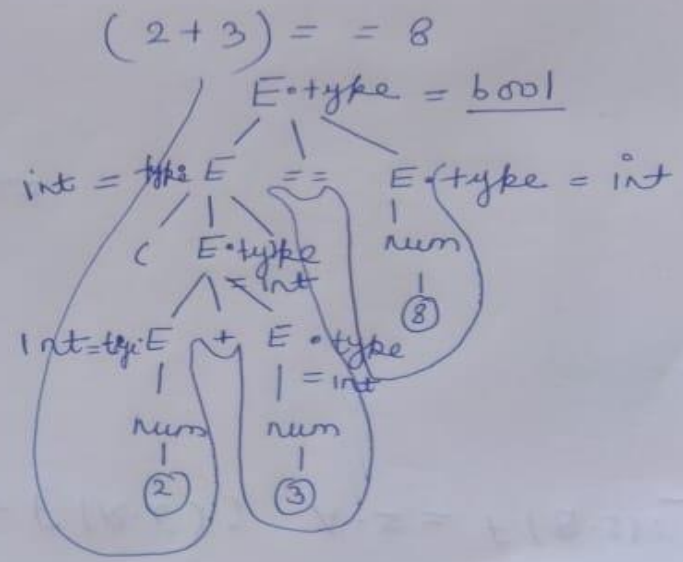 (2+3) = = 8
E.type = bool
int = type E == E.type = int
( E.type num
= int
8
int=tyi E + E .type
= int
num num
2 3